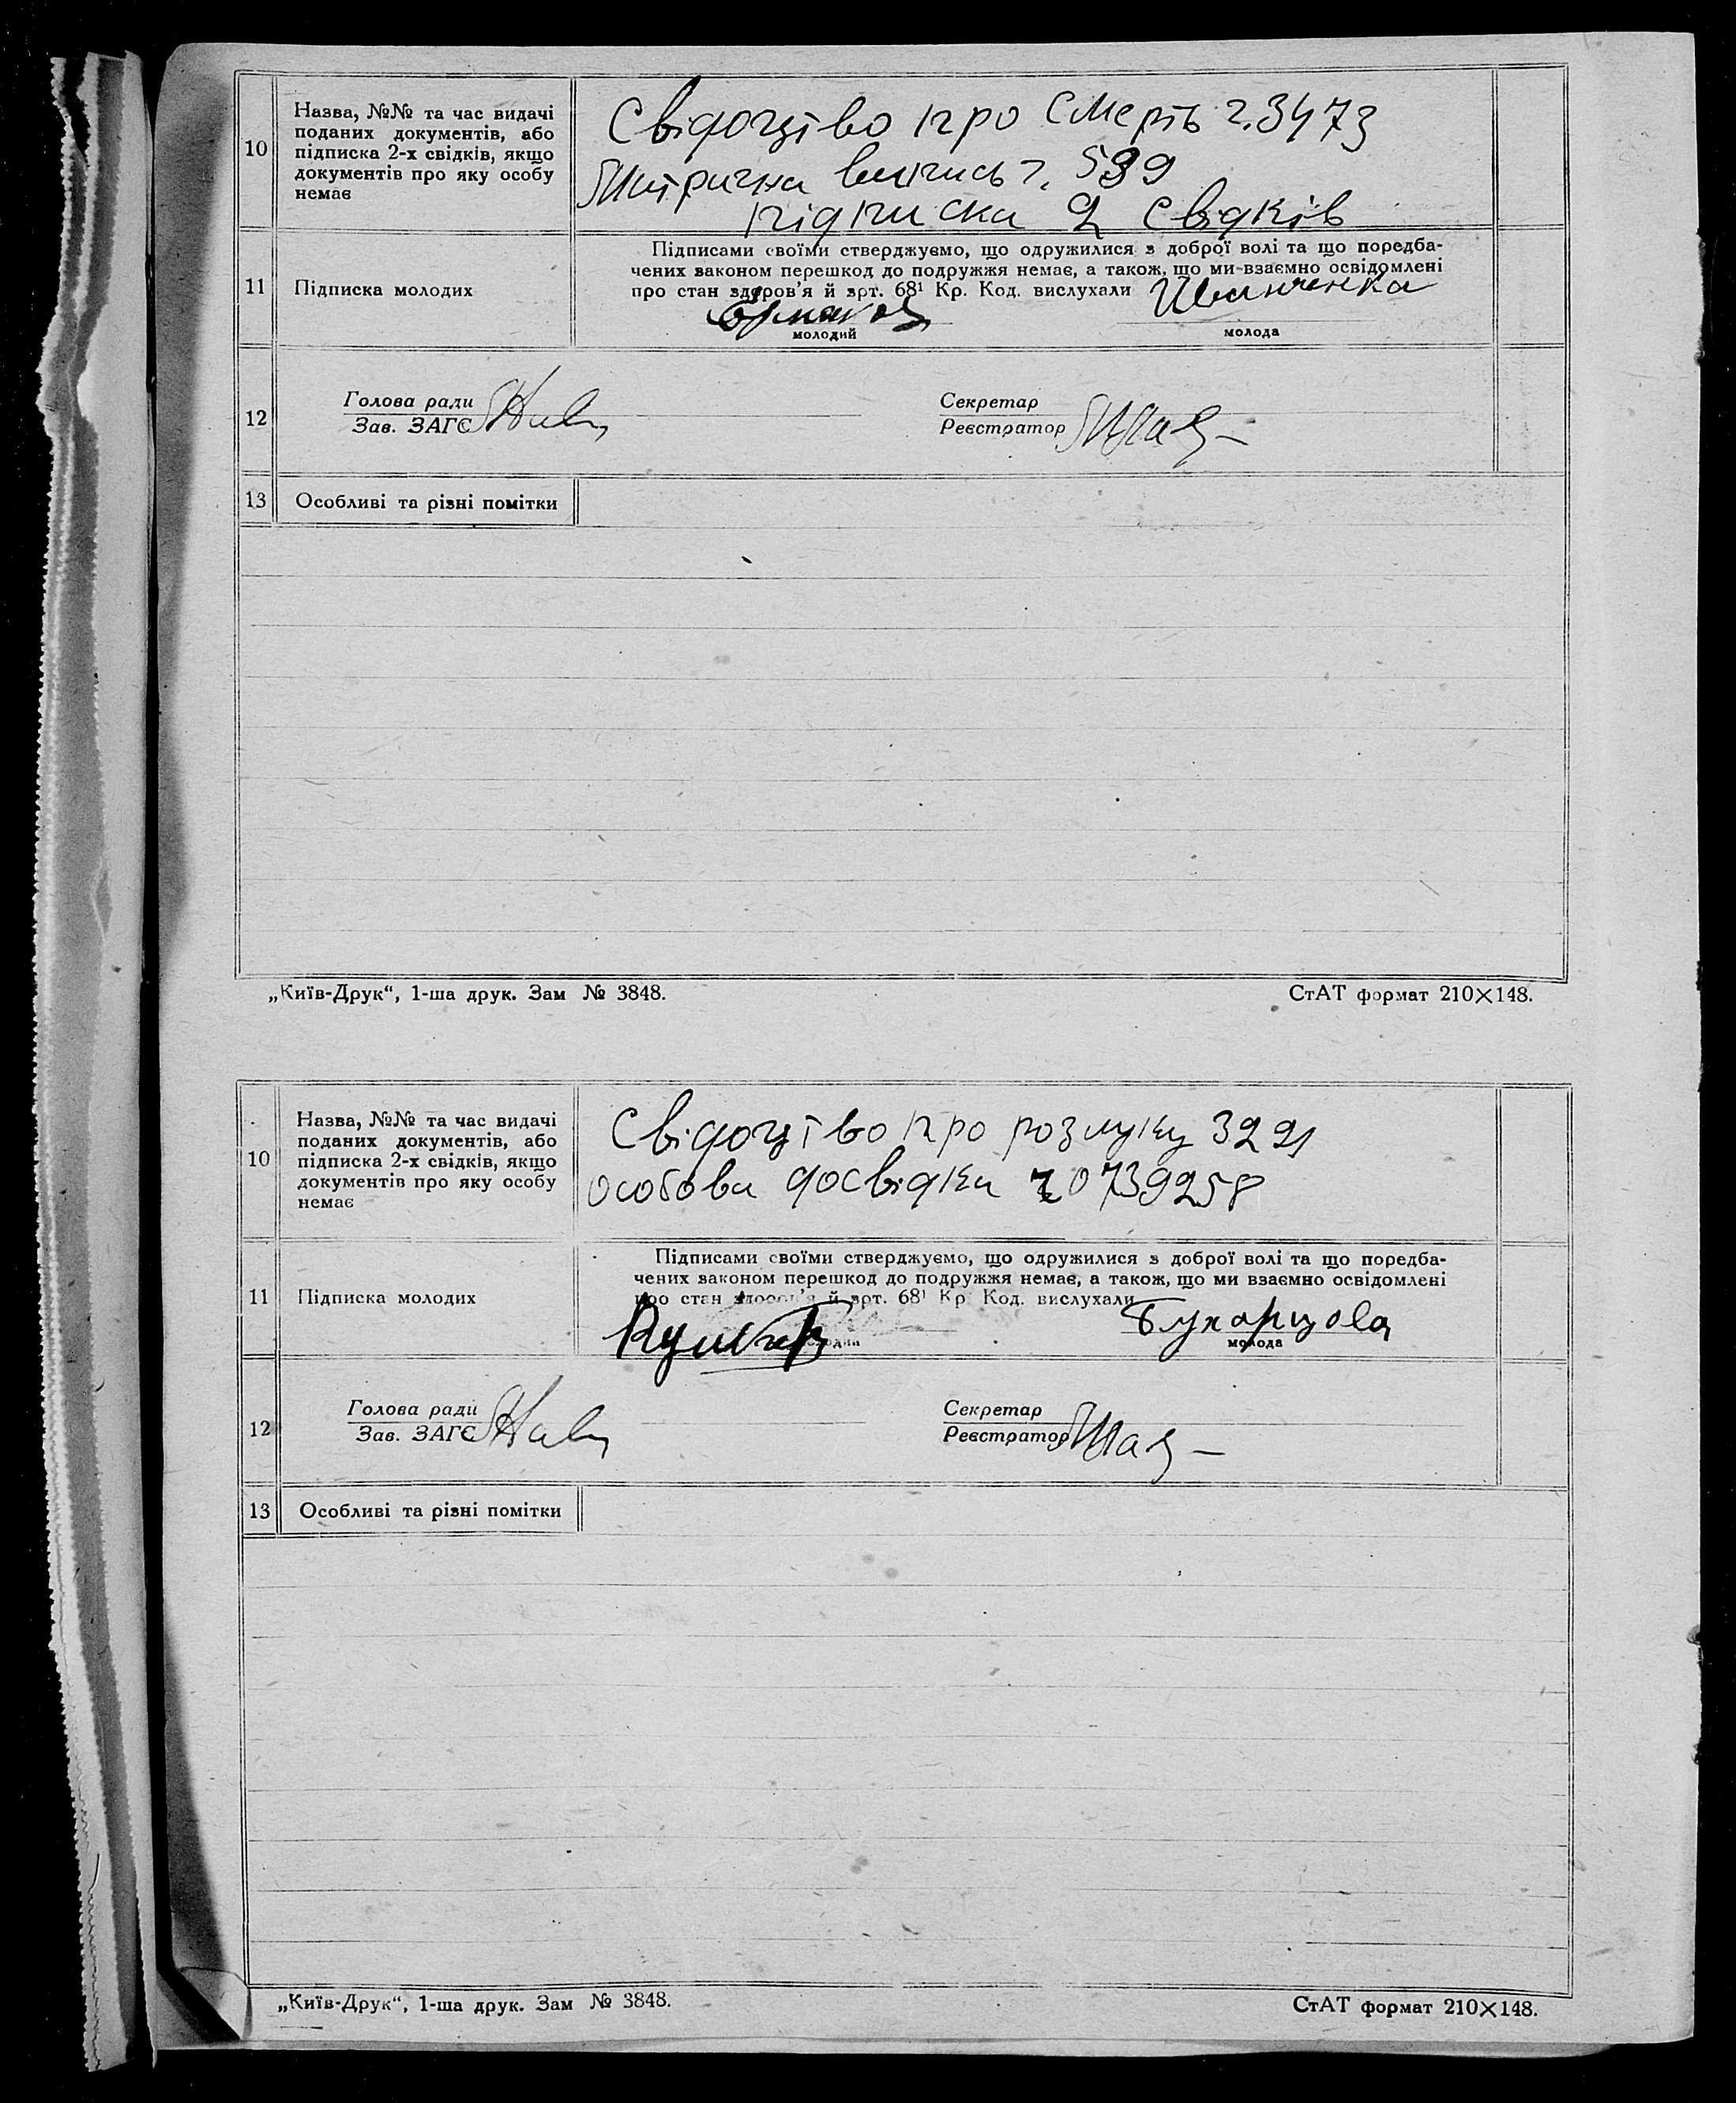 10
Назва, №№ та час видачі
поданих документів, або
підписка 2-х свідків, якщо
документів про яку особу
немає
Свідоцтво про смерть ч. 3473
Метрична випись ч. 539
підписка 2 свідків
11
Підписка молодих
Підписами своїми стверджуємо, що одружилися з доброї волі та що поредба-
чених законом перешкод до подружжя немає, а також, що ми взаємно освідомлені
про стан здоров'я й арт. 68¹ Кр. Код. вислухали
Иванченко
молодий
молода
12
Голова ради
Зав. ЗАГС
Секретар
Реєстратор
13
Особливі та різні помітки
„Київ-Друк“, 1-ша друк. Зам № 3848.
СтАТ формат 210×148.
10
Назва, №№ та час видачі
поданих документів, або
підписка 2-х свідків, якщо
документів про яку особу
немає
Свідоцтво про розлуку 3221
особова досвідка ч 0739258
11
Підписка молодих
Підписами своїми стверджуємо, що одружилися з доброї волі та що поредба-
чених законом перешкод до подружжя немає, а також, що ми взаємно освідомлені
про стан здоров'я й арт. 68¹ Кр. Код. вислухали
Бухарцова
молодий
молода
12
Голова ради
Зав. ЗАГС
Секретар
Реєстратор
13
Особливі та різні помітки
„Київ-Друк“, 1-ша друк. Зам № 3848.
СтАТ формат 210×148.